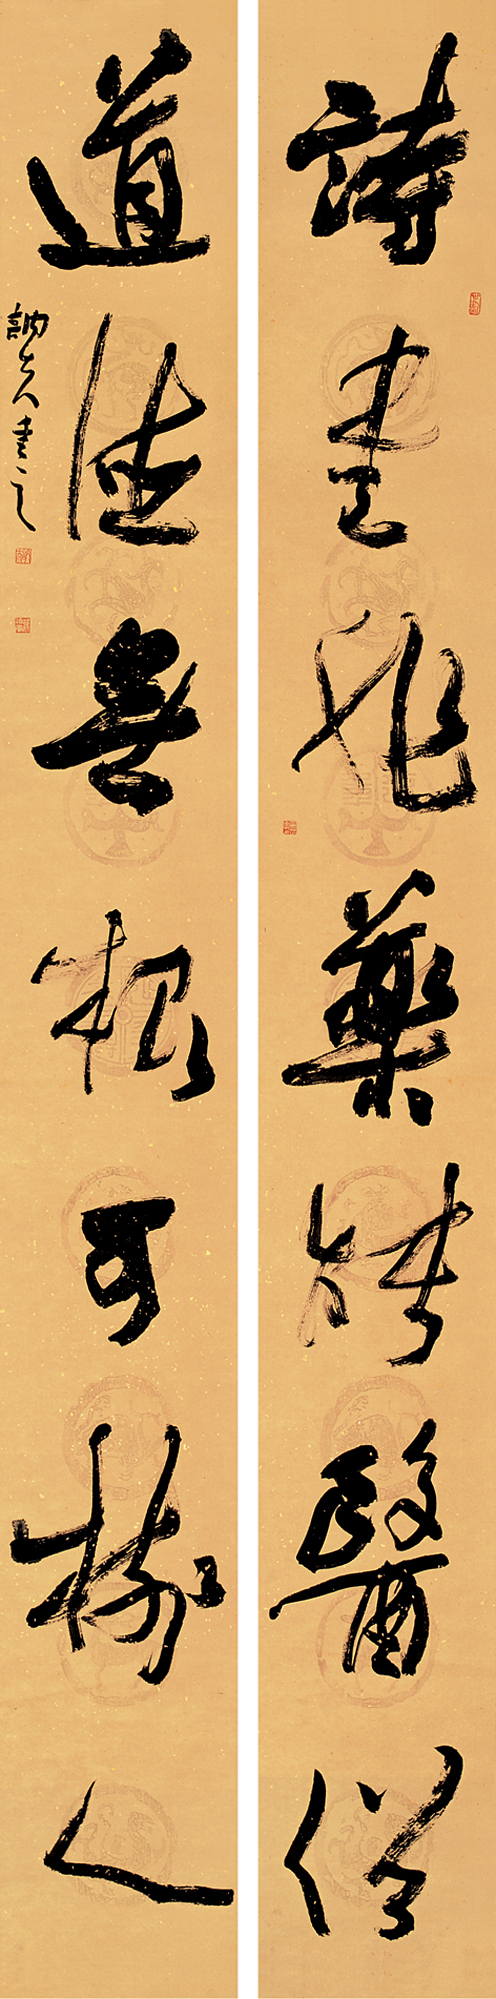 詩書非藥能醫俗
道德無根可樹人
訥夫書之